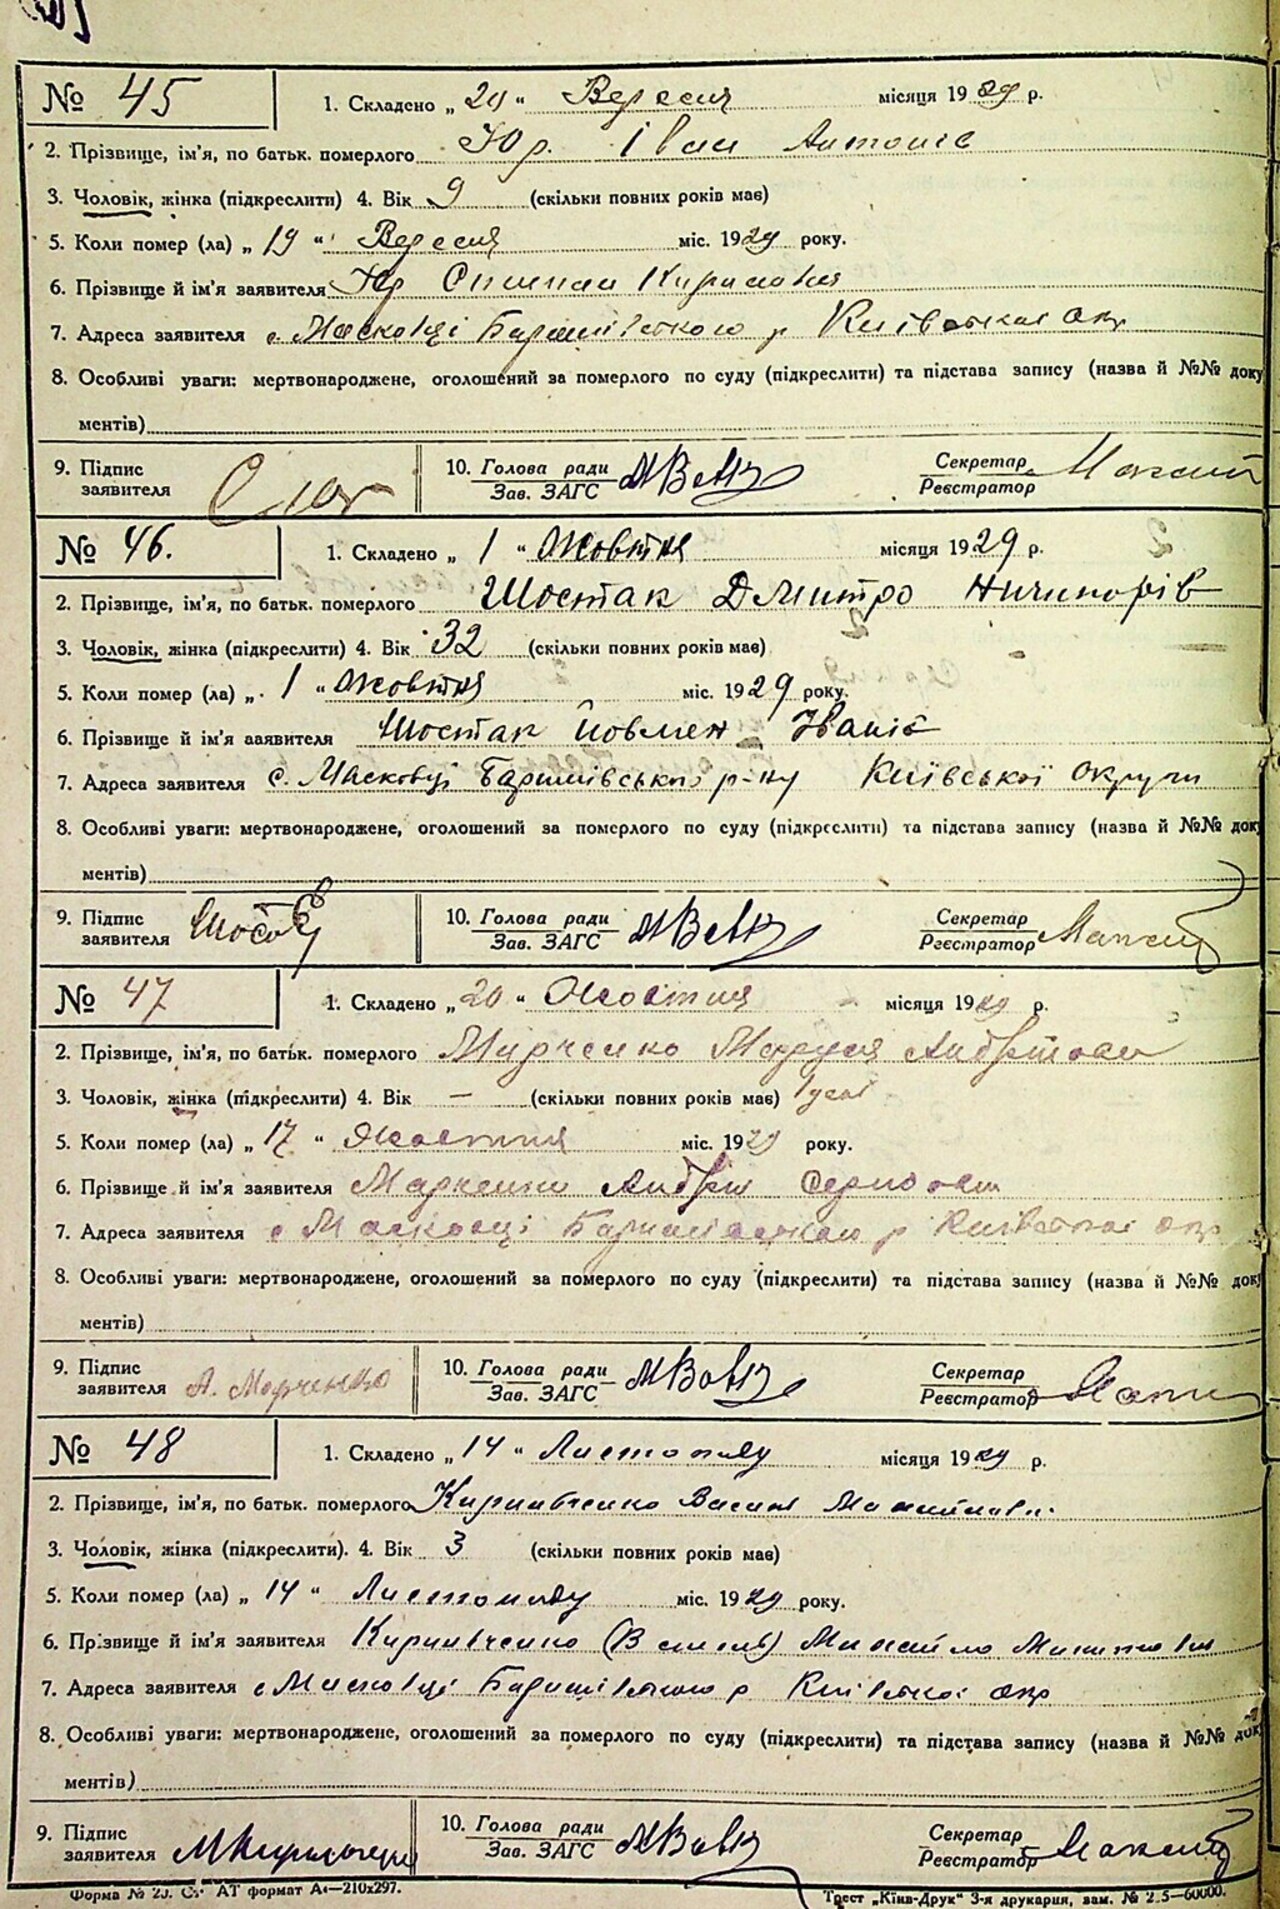 № 45 1. Складено „ 20 “ Вересня місяця 1929 р.
2. Прізвище, ім'я, по батьк. померлого Юр. Іван Антонів
3. Чоловік, жінка (підкреслити) 4. Вік 9 (скільки повних років має)
5. Коли помер (ла) „ 19 “ Вересня міс. 1929 року.
6. Прізвище й ім'я заявителя Юр
7. Адреса заявителя с. Масковці Баришівського р Київської окр
8. Особливі уваги: мертвонароджене, оголошений за померлого по суду (підкреслити) та підстава запису (назва й №№ доку
ментів)
9. Підпис заявителя 10. Голова ради Зав. ЗАГС МВовк Секретар Реєстратор
№ 46. 1. Складено „ 1 “ Жовтня місяця 1929 р.
2. Прізвище, ім'я, по батьк. померлого Шостак Дмитро Ничипорів
3. Чоловік, жінка (підкреслити) 4. Вік 32 (скільки повних років має)
5. Коли помер (ла) „ 1 “ Жовтня міс. 1929 року.
6. Прізвище й ім'я заявителя Шостак Йовмен Іванів
7. Адреса заявителя с. Масковці Баришівського р-ну Київської округи
8. Особливі уваги: мертвонароджене, оголошений за померлого по суду (підкреслити) та підстава запису (назва й №№ доку
ментів)
9. Підпис заявителя 10. Голова ради Зав. ЗАГС МВовк Секретар Реєстратор
№ 47 1. Складено „ 20 “ Жовтня місяця 1929 р.
2. Прізвище, ім'я, по батьк. померлого Марченко Маруся
3. Чоловік, жінка (підкреслити) 4. Вік — (скільки повних років має)
5. Коли помер (ла) „ 17 “ Жовтня міс. 1929 року.
6. Прізвище й ім'я заявителя Марченко Андрій
7. Адреса заявителя с Масковці Баришівського р Київської окр
8. Особливі уваги: мертвонароджене, оголошений за померлого по суду (підкреслити) та підстава запису (назва й №№ доку
ментів)
9. Підпис заявителя А. Марченко 10. Голова ради Зав. ЗАГС МВовк Секретар Реєстратор
№ 48 1. Складено „ 14 “ Листопаду місяця 1929 р.
2. Прізвище, ім'я, по батьк. померлого Василь
3. Чоловік, жінка (підкреслити). 4. Вік 3 (скільки повних років має)
5. Коли помер (ла) „ 14 “ Листопаду міс. 1929 року.
6. Прізвище й ім'я заявителя Михайло
7. Адреса заявителя с Масковці Баришівського р Київської окр
8. Особливі уваги: мертвонароджене, оголошений за померлого по суду (підкреслити) та підстава запису (назва й №№ док
ментів)
9. Підпис заявителя 10. Голова ради Зав. ЗАГС МВовк Секретар Реєстратор
Форма № АТ формат А4—210х297. Трест „Київ-Друк“ 3-я друкарня, зам. №